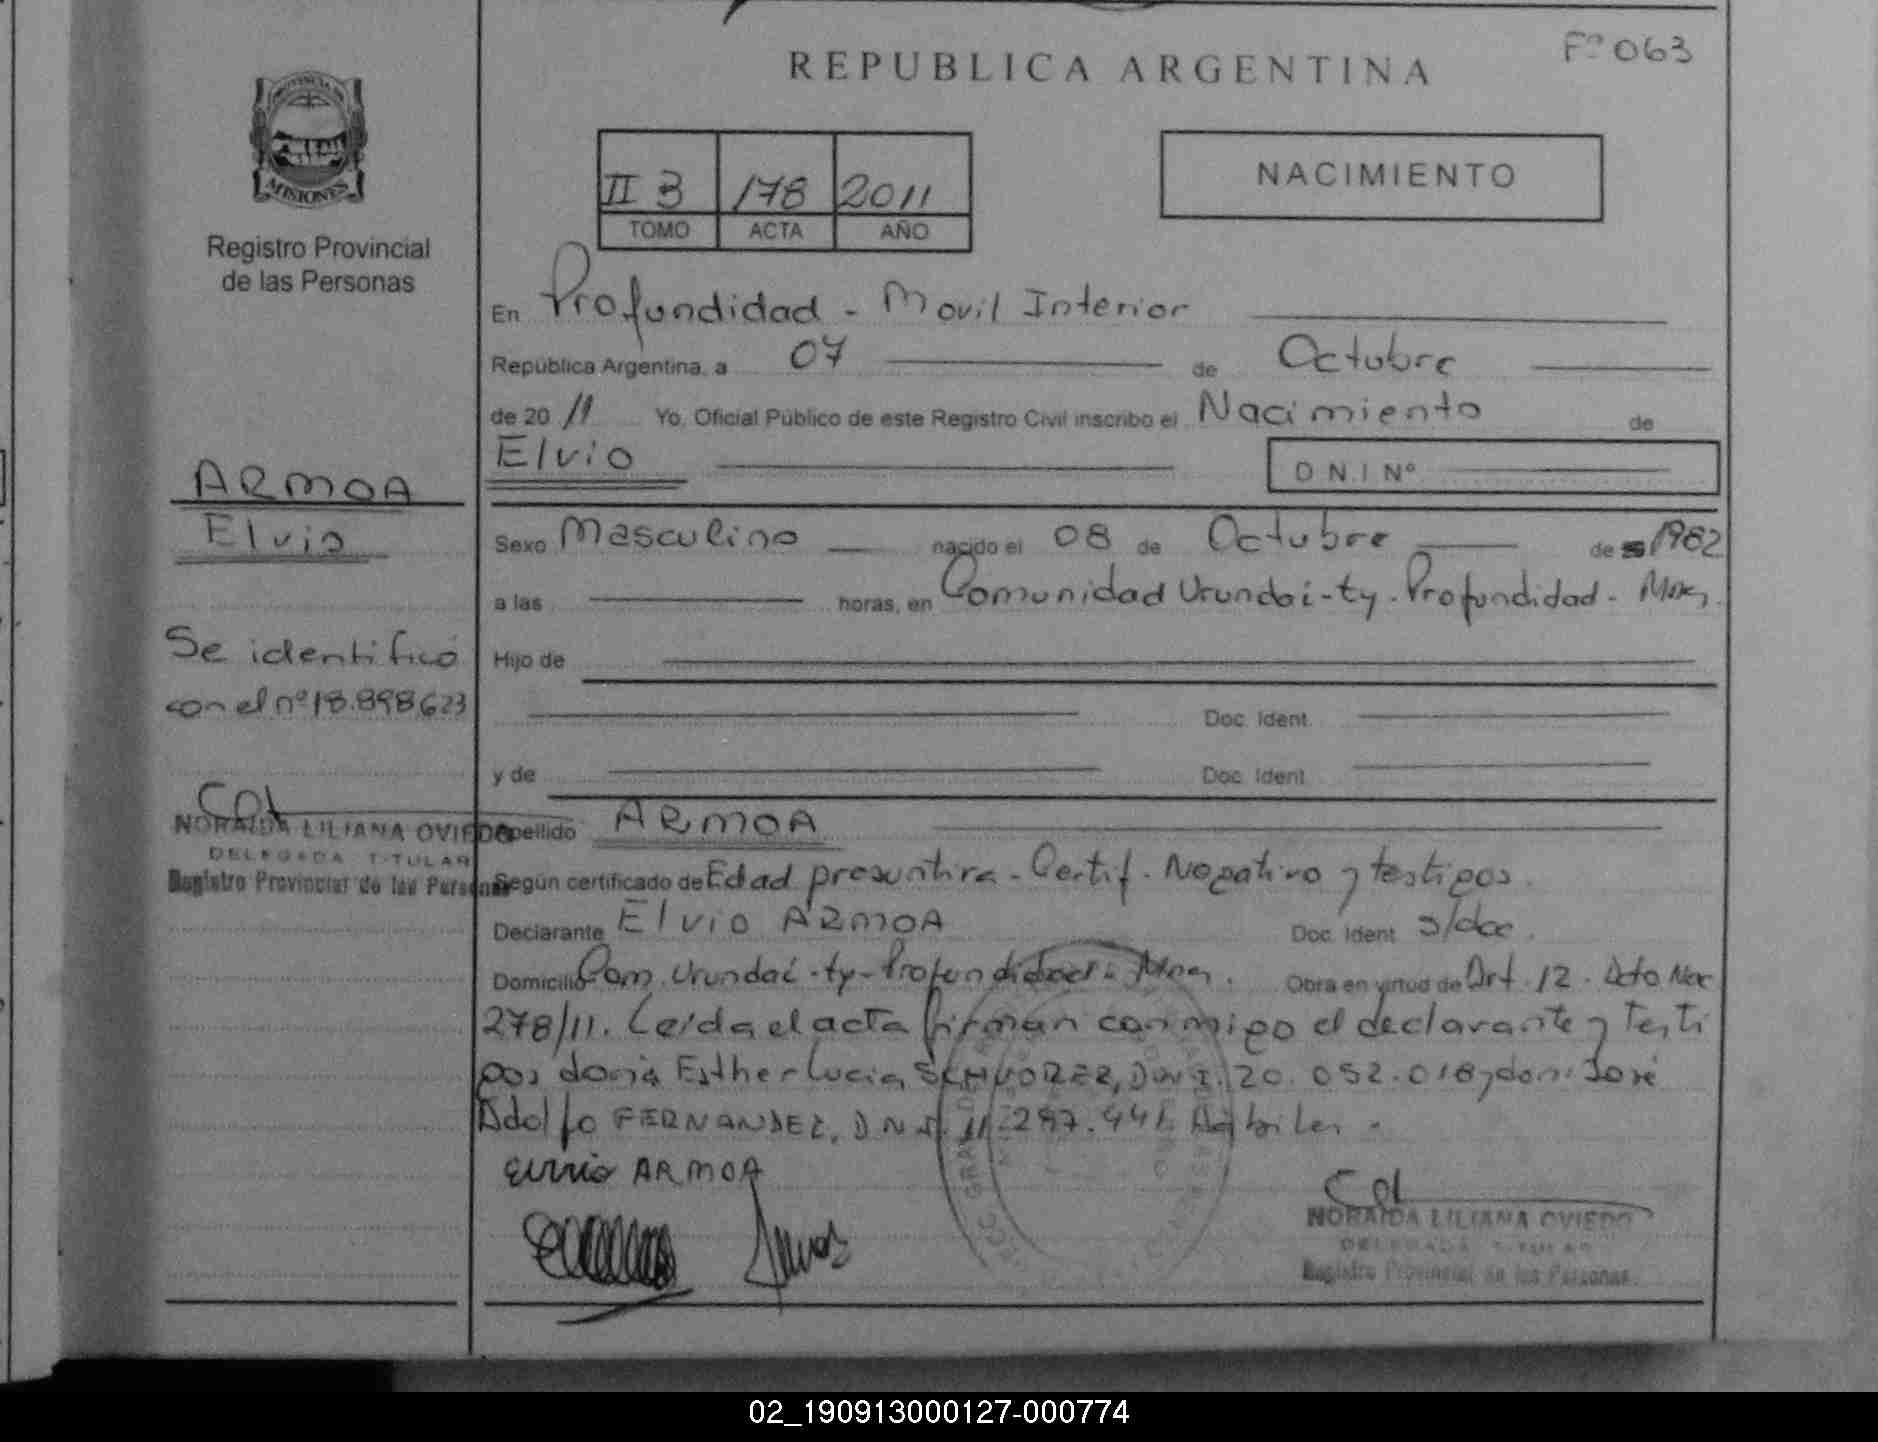 Fº 063
REPUBLICA ARGENTINA
MISIONES
Registro Provincial
de las Personas
II 3 178 2011
TOMO ACTA AÑO
NACIMIENTO
En Profundidad - Movil Interior
República Argentina, a 07 de Octubre
de 2011 Yo, Oficial Público de este Registro Civil inscribo el Nacimiento de
Elvio
D N I Nº
ARMOA
Elvio
Se identificó
con el nº 18.898.623
NORAIDA LILIANA OVIEDO
DELEGADA TITULAR
Registro Provincial de las Personas
Sexo Masculino nacido el 08 de Octubre de 1982
a las horas, en Comunidad Urundai-ty - Profundidad - Mnes.
Hijo de
Doc. Ident.
y de Doc. Ident.
Apellido ARMOA
Según certificado de Edad presuntiva - Certif. Negativo y testigos.
Declarante Elvio ARMOA Doc. Ident. s/doc.
Domicilio Com. Urundai-ty - Profundidad - Mnes. Obra en virtud de Art. 12. Dcto Nac
278/11. Leída el acta firman conmigo el declarante y testi
gos doña Esther Lucia D.N.I. 20.052.018 y don José
Adolfo FERNANDEZ, D.N.I. 11.297.441. Hábiles.
Elvio ARMOA
NORAIDA LILIANA OVIEDO
DELEGADA TITULAR
Registro Provincial de las Personas
02_190913000127-000774